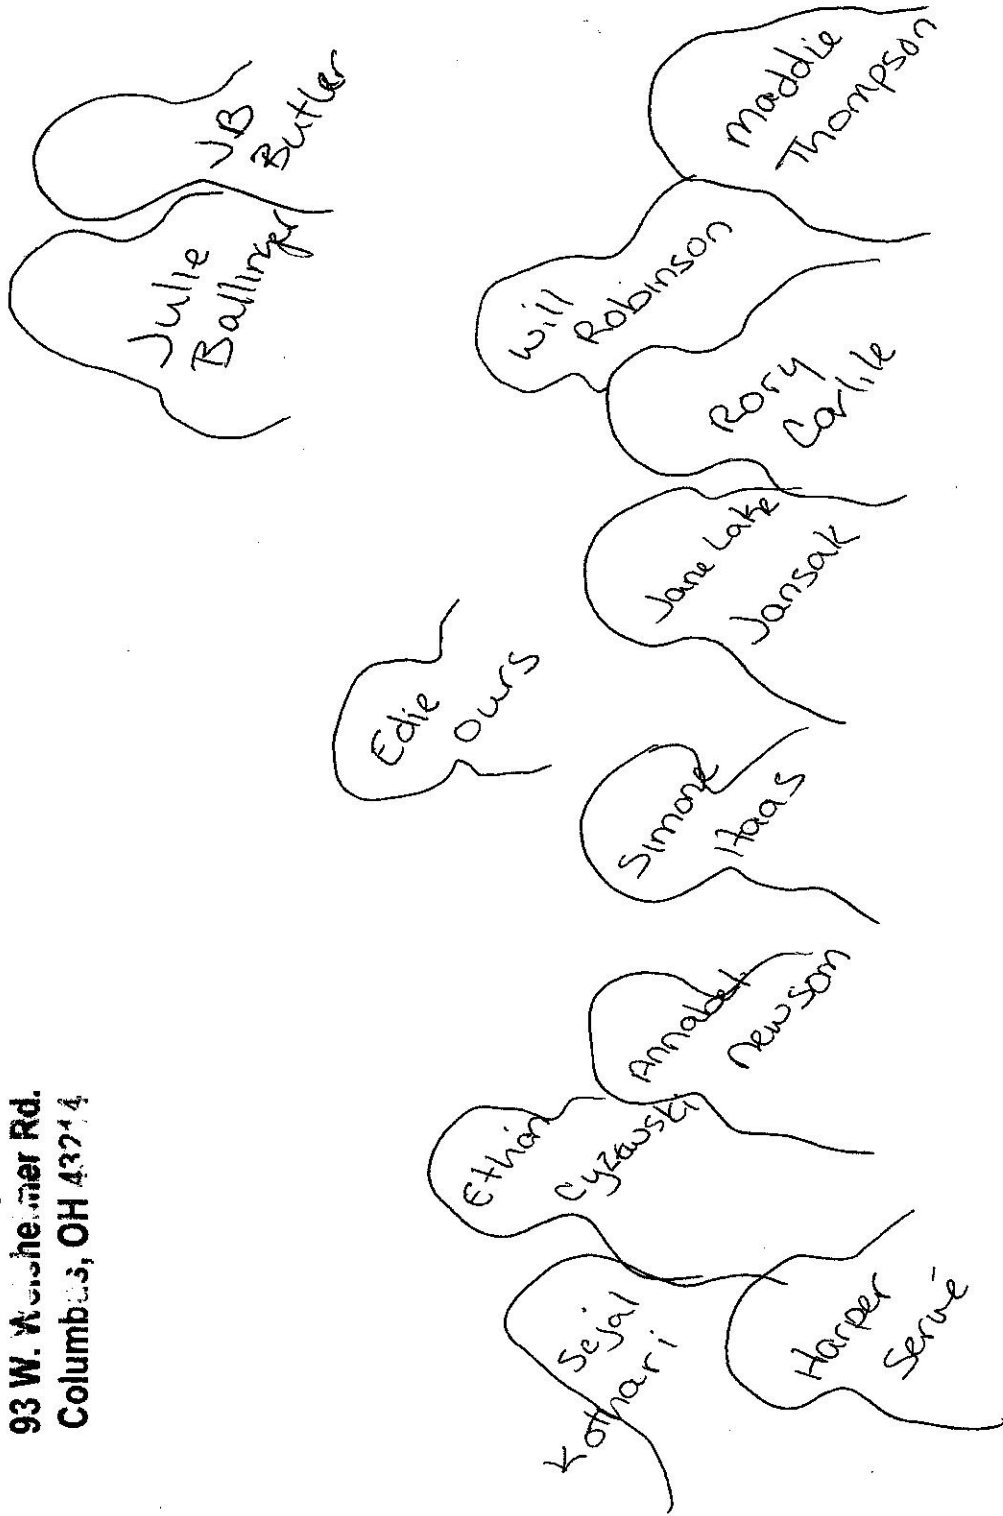 93 W. Weisheimer Rd.
Columbus, OH 43214
Julie
Ballinger
JB
Butler
Edie
Ours
Sejal
Kothari
Ethan
Cyzowski
Annabel
Newsom
Simone
Haas
Jane Lake
Jansak
Rory
Carlile
Will
Robinson
Maddie
Thompson
Harper
Servé